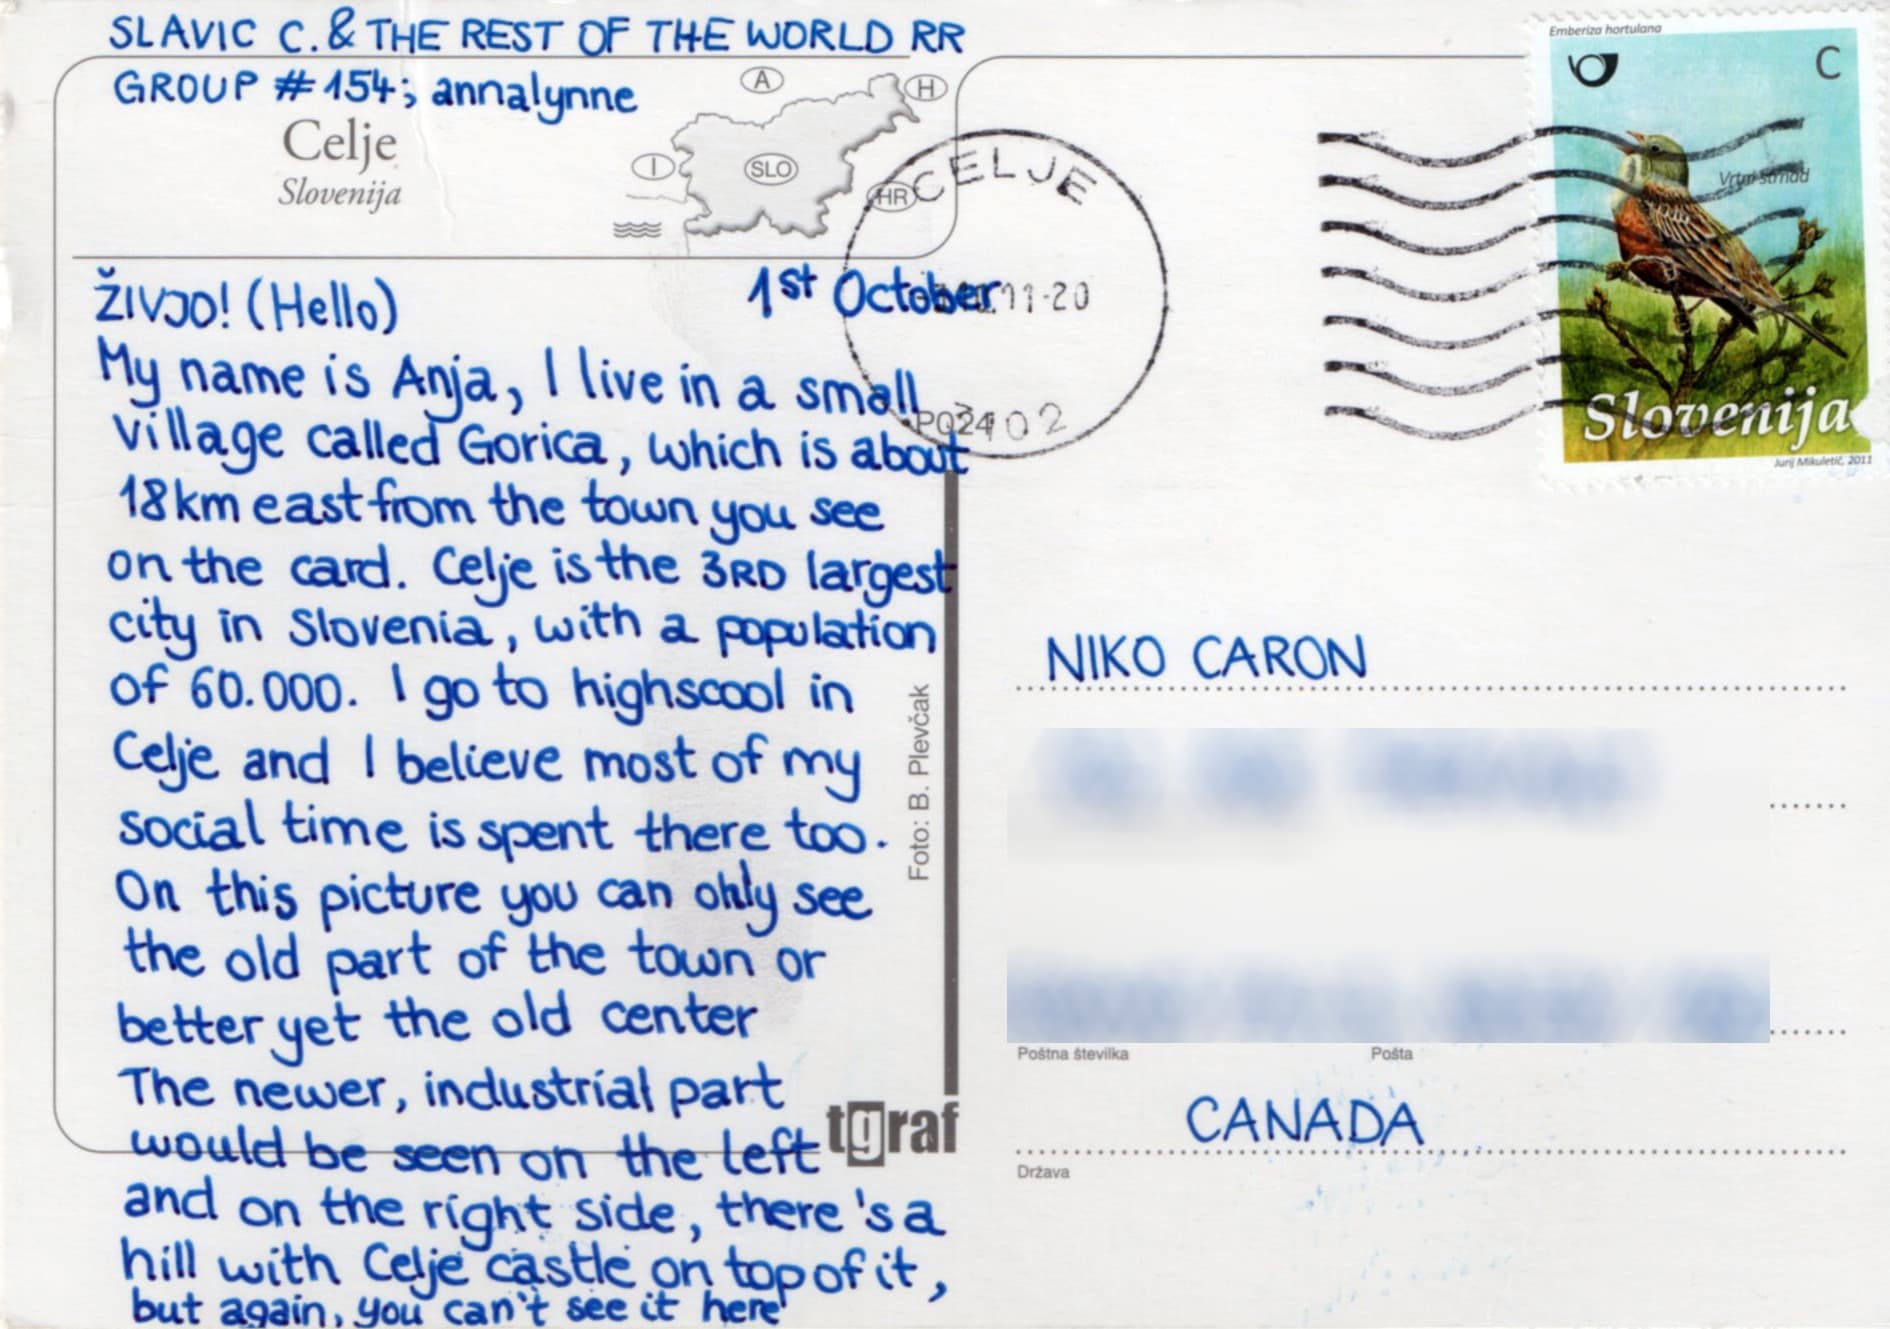 SLAVIC C. & THE REST OF THE WORLD RR
GROUP #154; annalynne
Celje
Slovenija
A
H
I
SLO
HR
ŽIVJO! (Hello)
1st October
My name is Anja, I live in a small
village called Gorica, which is about
18km east from the town you see
on the card. Celje is the 3RD largest
city in Slovenia, with a population
of 60.000. I go to highscool in
Celje and I believe most of my
social time is spent there too.
On this picture you can only see
the old part of the town or
better yet the old center
The newer, industrial part
would be seen on the left
and on the right side, there's a
hill with Celje castle on top of it,
but again, you can't see it here
Foto: B. Plevčak
tgraf
CELJE
11-20
Emberiza hortulana
C
Vrtni strnad
Slovenija
Jurij Mikuletič, 2011
NIKO CARON
Poštna številka
Pošta
CANADA
Država